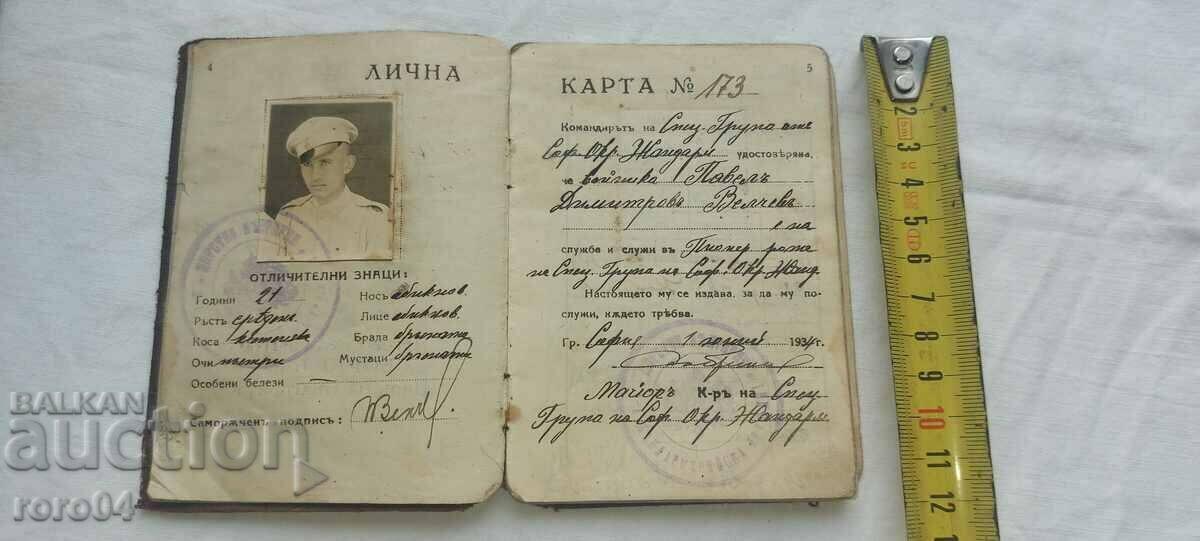 4
ЛИЧНА
ОТЛИЧИТЕЛНИ ЗНАЦИ:
Години 21 Носъ обикнов.
Ръстъ срѣденъ Лице обикнов.
Коса кестенява Брада бръсната
Очи пъстри Мустаци бръснати
Особени белези —
Саморѫченъ подписъ:
5
КАРТА № 173
Командирътъ на Спец. Група отъ
Соф. Окр. Жандарм. удостовѣрява,
че войника Павелъ
Димитровъ Велчевъ
е на
служба и служи въ Пионер. рота
на Спец. Група на Соф. Окр. Жанд.
Настоящето му се издава, за да му по-
служи, кѫдето трѣбва.
Гр. София 1 юний 1934 г.
Майоръ К-ръ на Спец.
Група на Соф. Окр. Жандарм.
BALKAN
auction
roro04
2
3
4
5
6
7
8
9
10
11
12